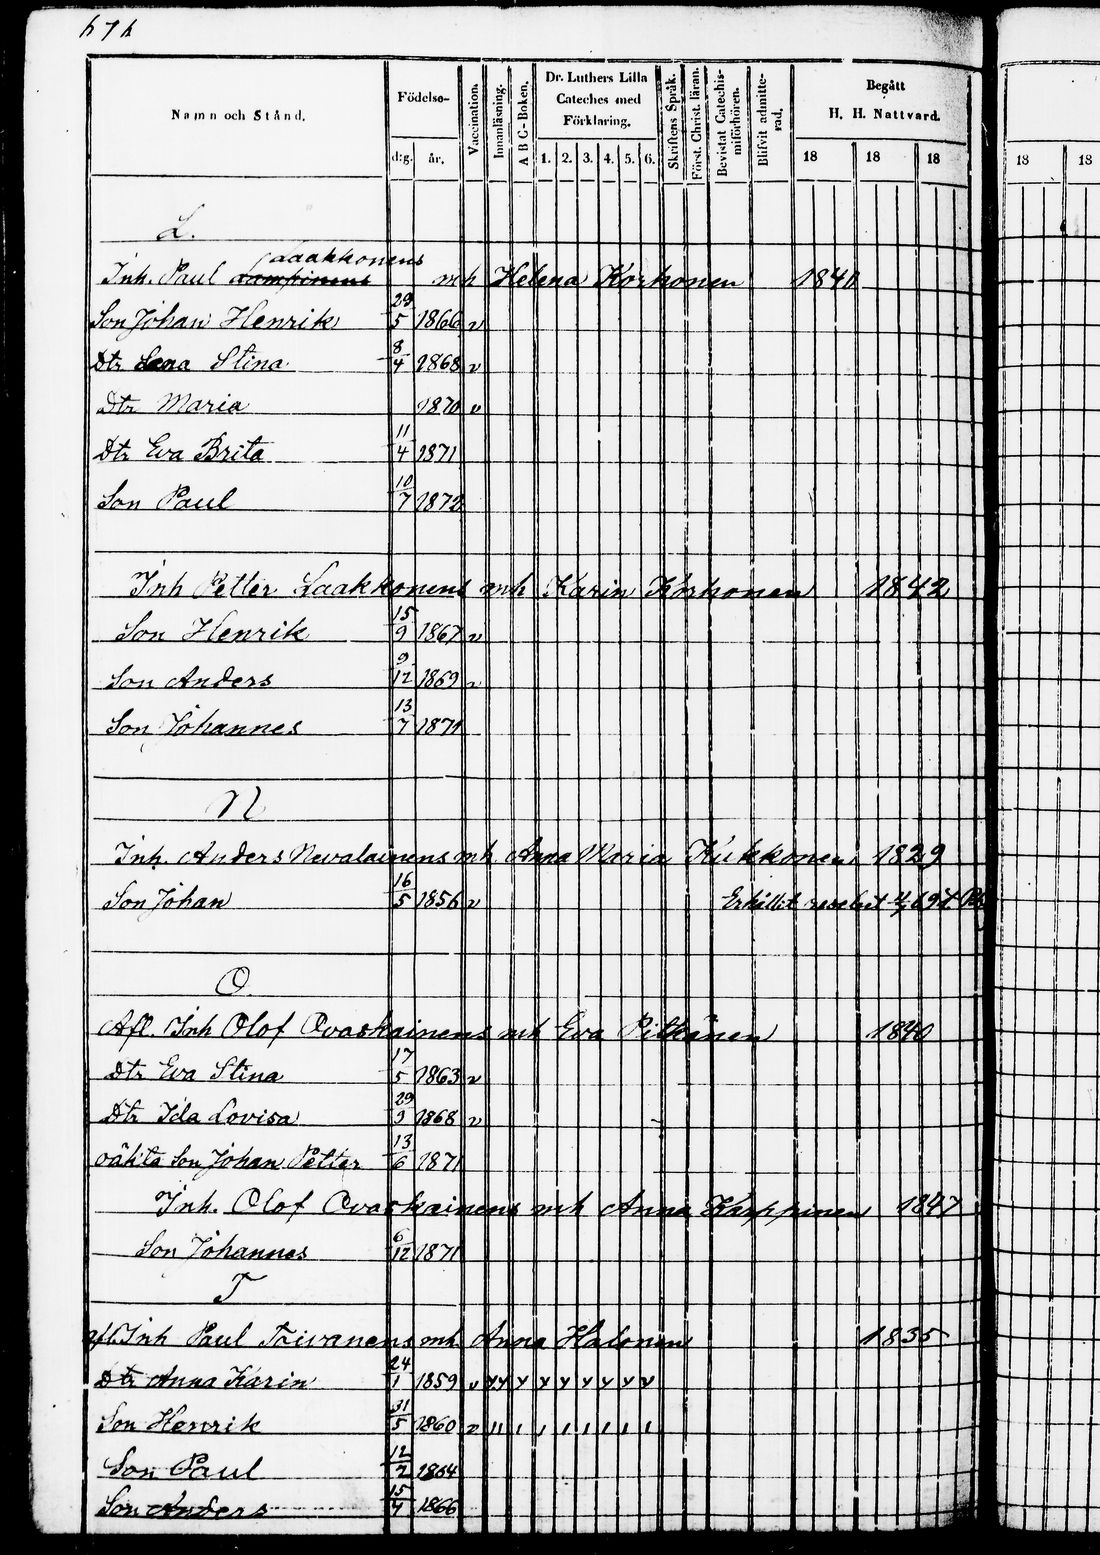 676
Namn och Stånd. Födelse- Vaccination. Innanläsning. A B C-Boken. Dr. Luthers Lilla Cateches med Förklaring. Skriftens Språk. Först. Christ. läran. Bevistat Catechismiförhören. Blifvit admitterad. Begått H. H. Nattvard.
d:g. år. 1. 2. 3. 4. 5. 6. 18 18 18 18 18
L.
Laakkonens
Inh. Paul mh Helena Korhonen 1840
Son Johan Henrik 29/5 1866 v
Dtr Lena Stina 8/4 1868 v
Dtr Maria 1870 v
Dtr Eva Brita 11/4 1871
Son Paul 10/7 1872
Inh Petter Laakkonens mh Karin Korhonen 1842
Son Henrik 15/9 1867 v
Son Anders 9/12 1869 v
Son Johannes 13/7 1871
N
Inh. Anders Nevalainens mh Anna Maria Kukkonen 1829
Son Johan 16/5 1856 v Erhållit
O.
Afl. Inh Olof Ovaskainens mh Eva Pitkänen 1840
Dtr Eva Stina 17/5 1863 v
Dtr Ida Lovisa 29/9 1868 v
oäkta Son Johan Petter 13/6 1871
Inh. Olof Ovaskainens mh Anna Karppinen 1847
Son Johannes 6/12 1871
T
Afl. Inh Paul Toivanens mh Anna Halonen 1835
Dtr Anna Karin 24/1 1859 v
Son Henrik 31/5 1860 v
Son Paul 12/2 1864
Son Anders 15/4 1866